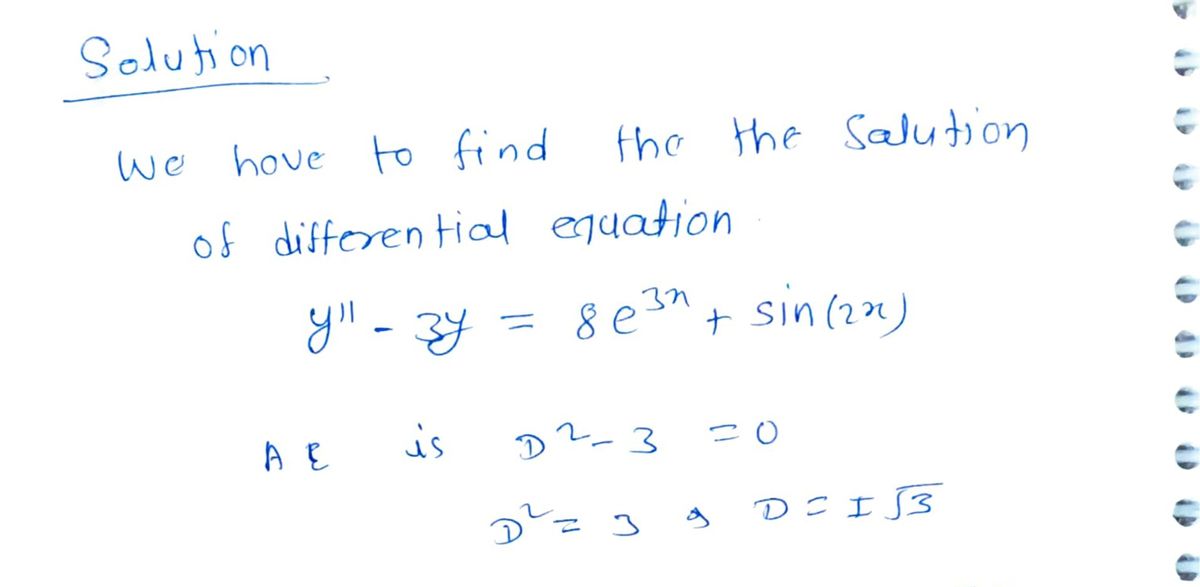 Solution
We hove to find tho the Salution
of differential equation
y'' - 3y = 8e³ˣ + sin(2x)
A E is D² - 3 = 0
D² = 3 , D = ± √3